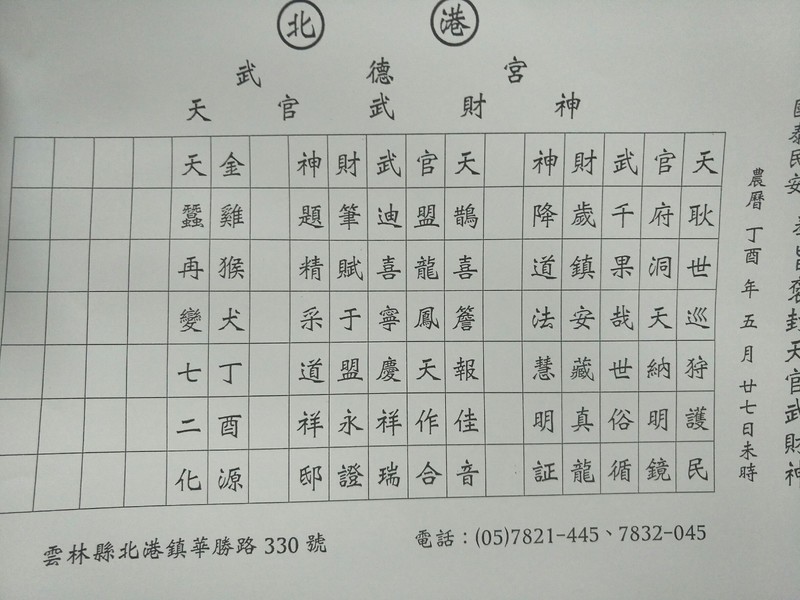 北 港
武德宮
天官武財神
國泰民安 褒封天官武財神
農曆丁酉年五月廿七日未時
天耿世巡狩護民
官府洞天納明鏡
武千果哉世俗循
財歲鎮安藏真龍
神降道法慧明証
天鵲喜簷報佳音
官盟龍鳳天作合
武迪喜寧慶祥瑞
財筆賦于盟永證
神題精采道祥邸
金雞猴犬丁酉源
天蠶再變七二化
電話：(05)7821-445、7832-045
雲林縣北港鎮華勝路 330 號